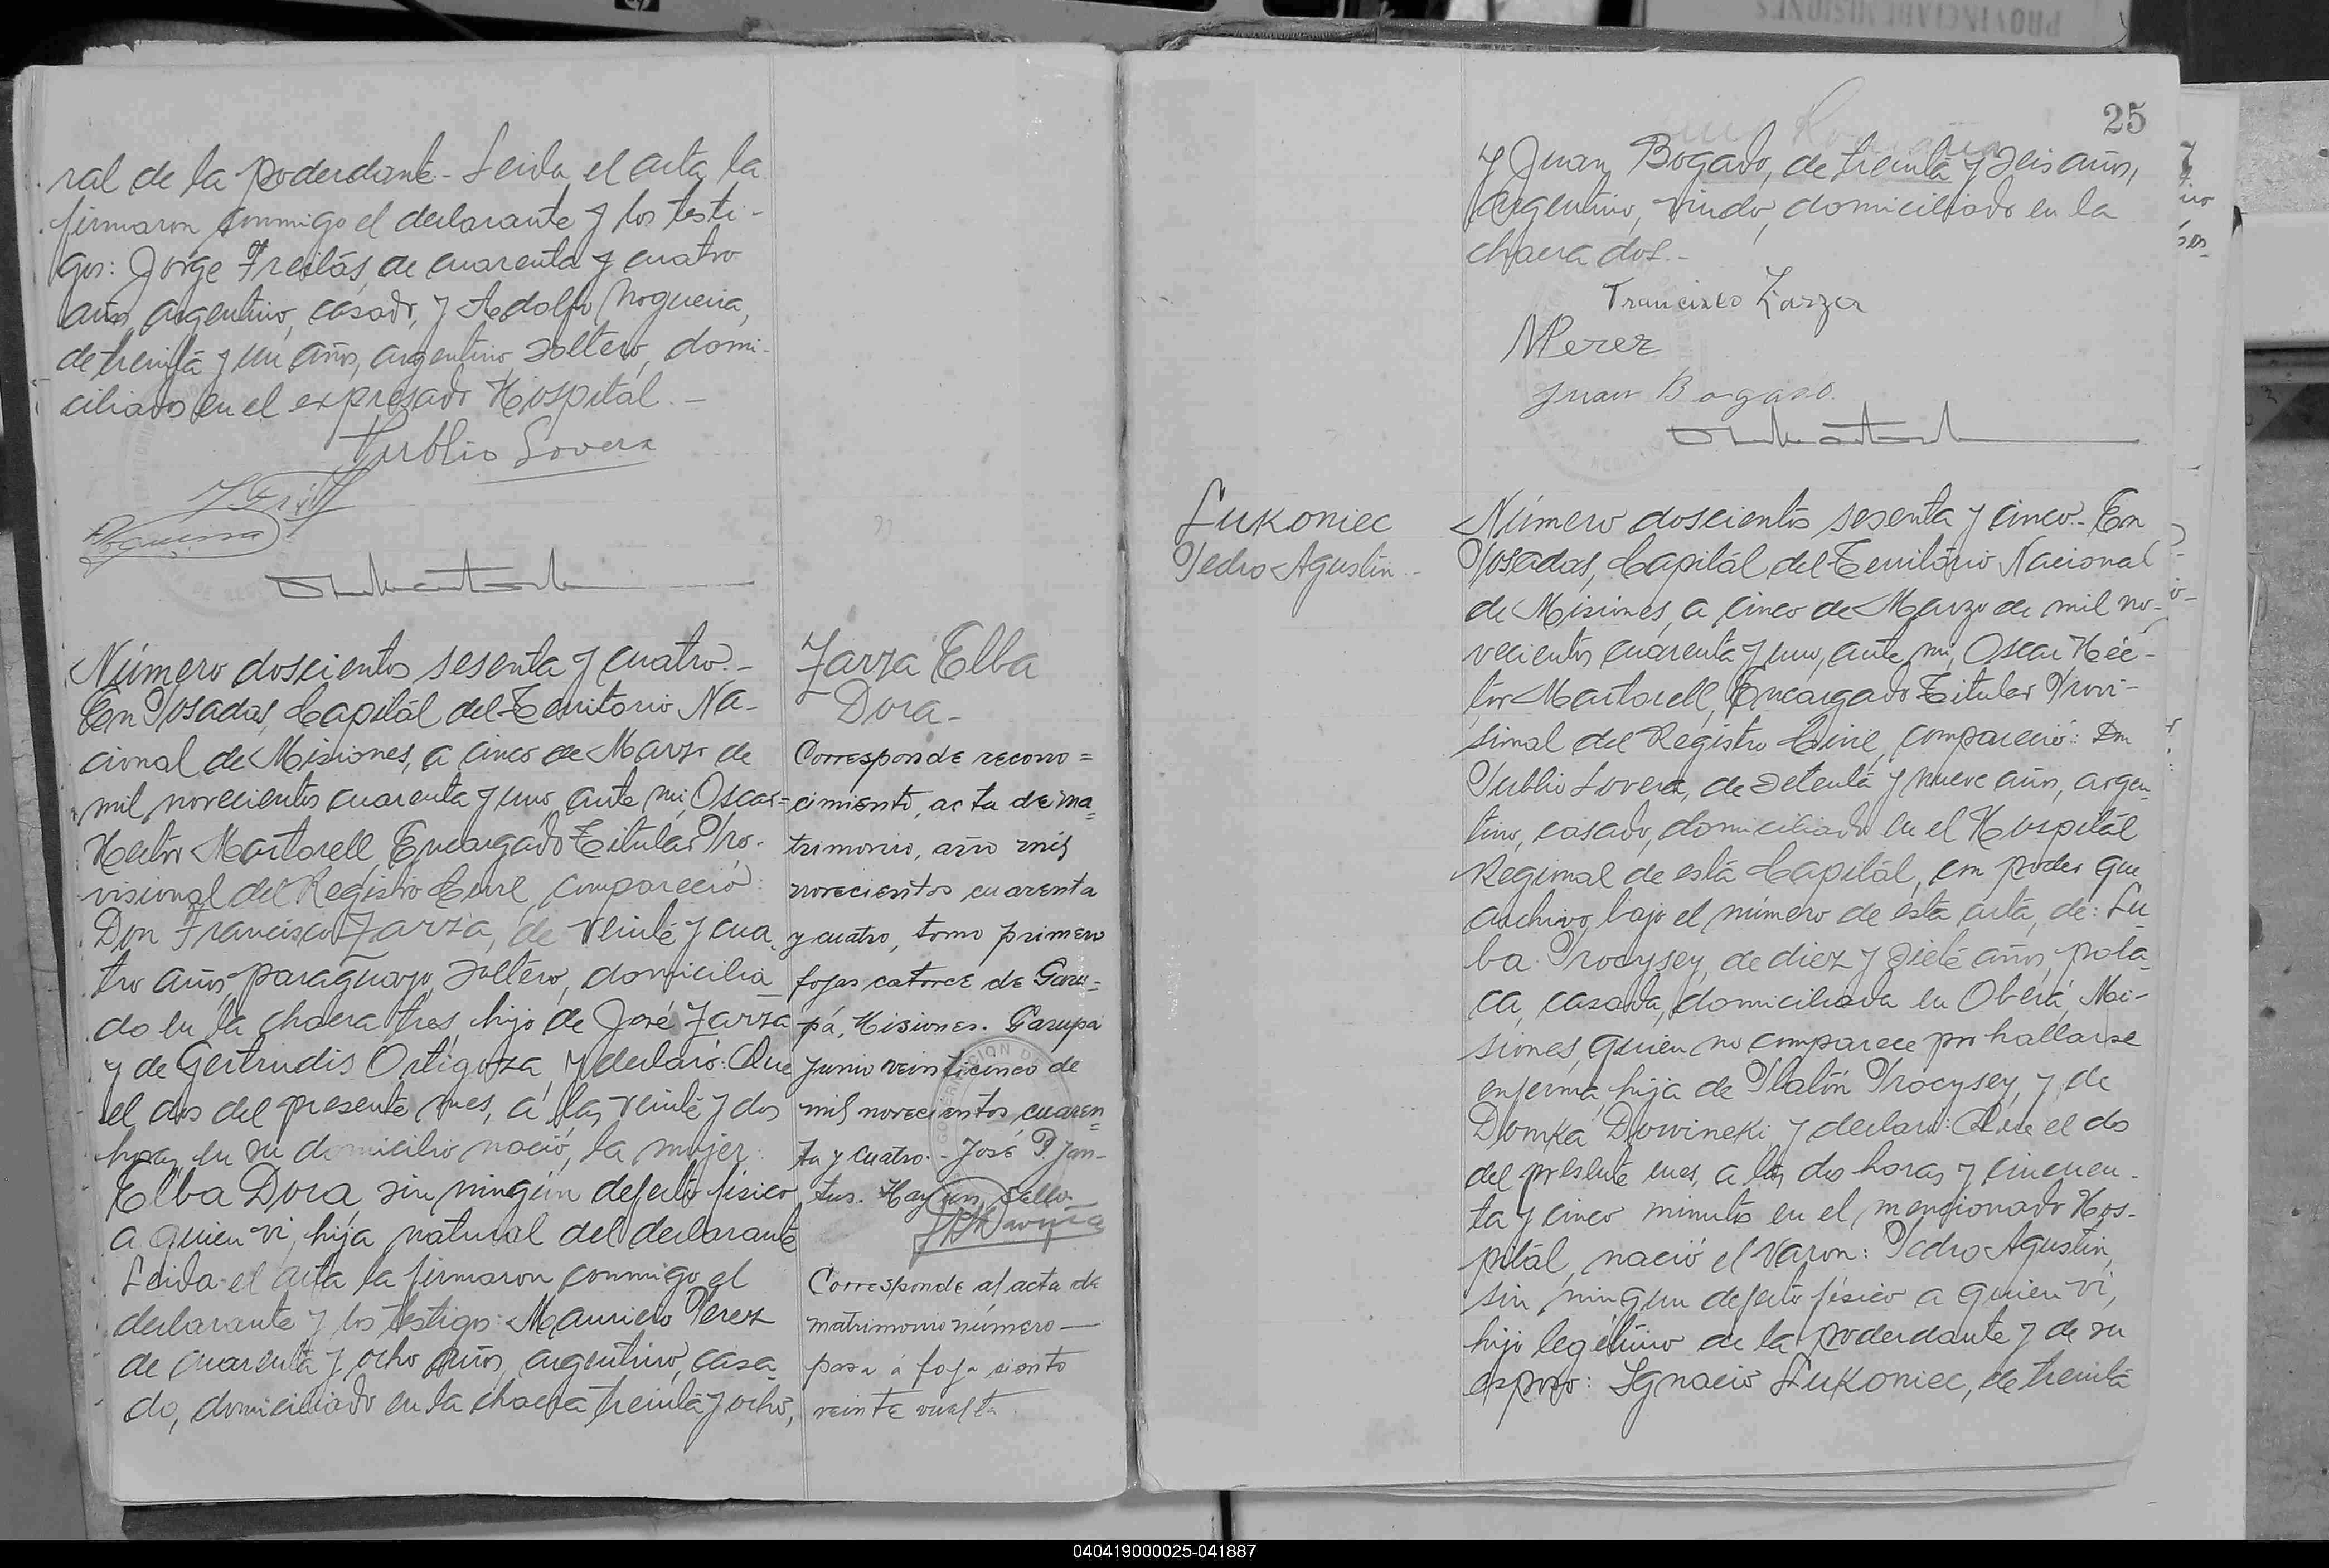 ral de la poderdante.- Leida el acta la
firmaron conmigo el declarante y los testi-
gos: Jorge Freitás, de cuarenta y cuatro
años, argentino, casado, y Adolfo Nogueira,
de treinta y un años, argentino, soltero, domi-
ciliados en el expresado Hospital.-
Publio Lovera
Número doscientos sesenta y cuatro.-
En Posadas, Capitál del Territorio Na-
cional de Misiones, a cinco de Marzo de
mil novecientos cuarenta y uno, ante mi, Oscar
Hector Martorell, Encargado Titular Pro-
visional del Registro Civil, compareció:
Don Francisco Zarza, de veinte y cua-
tro años, paraguayo, soltero, domicilia-
do en la chacra tres, hijo de José Zarza
y de Gertrudis Ortigoza, y declaró: Que
el dos del presente mes, a las veinte y dos
horas, en su domicilio nació, la mujer:
Elba Dora, sin ningún defecto fisico
a quien vi, hija natural del declarante
Leida el acta la firmaron conmigo el
declarante y los testigos: Mauricio Perez
de cuarenta y ocho años, argentino, casa-
do, domiciliado en la chacra treinta y ocho,
Zarza Elba
Dora-
Corresponde recono=
cimiento, acta de ma=
trimonio, año mil
novecientos cuarenta
y cuatro, tomo primero
fojas catorce de Garu=
pá, Misiones. Garupá
Junio veinticinco de
mil novecientos, cuaren=
ta y cuatro.- José P. Jan-
tus. Hay un sello.
Corresponde al acta de
matrimonio número—
pasa á foja siento
veinte vuelta
25
y Juan Bogado, de treinta y seis años,
argentino, viudo, domiciliado en la
chacra dos.-
Francisco Zarza
MPerez
Juan Bogado.
Lukoniec
Pedro Agustin-
Número doscientos sesenta y cinco.- En
Posadas, Capitál del Territorio Nacional
de Misiones, a cinco de Marzo de mil no-
vecientos cuarenta y uno, ante mi, Oscar Héc-
tor Martorell, Encargado Titular Provi-
sional del Registro Civil, compareció: Don
Publio Lovera, de setenta y nueve años, argen-
tino, casado, domiciliado en el Hospitál
Regional de está Capitál, con poder que
archivo, bajo el número de esta acta, de: Lu-
ba Procysey, de diez y siete años, pola-
ca, casada, domiciliada en Oberá, Mi-
siones, quien no comparece por hallarse
enferma, hija de Platón Procysey, y de
Domka Dowineki y declaró: Que el dos
del presente mes, a las dos horas y cincuen-
ta y cinco minutos en el mencionado Hos-
pitál, nació el varon: Pedro Agustin,
sin ningun defecto fisico a quien vi,
hijo legitimo de la poderdante y de su
esposo: Ignacio Lukoniec, de treinta
040419000025-041887